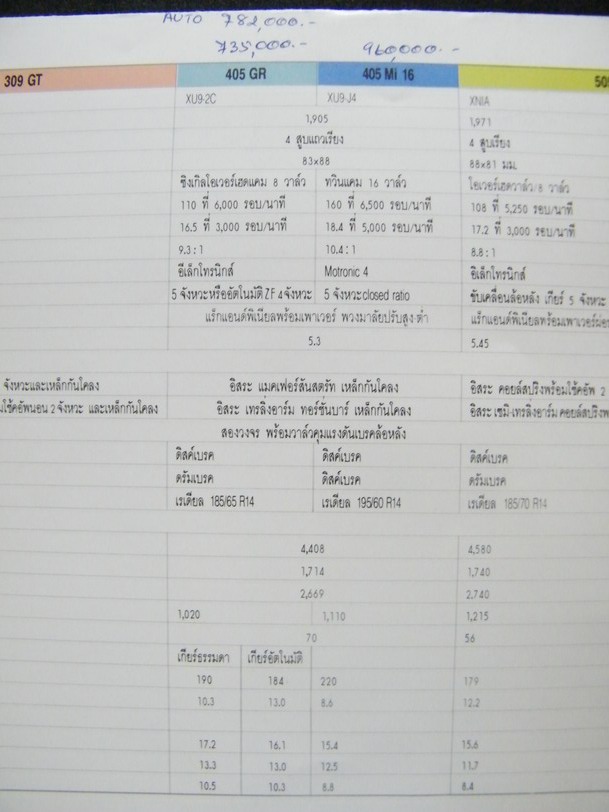 AUTO 782,000.-
735,000.- 960,000.-
309 GT 405 GR 405 Mi 16 505
XU9-2C XU9-J4 XNIA
1,905 1,971
4 สูบแถวเรียง 4 สูบเรียง
83x88 88x81 มม.
ซิงเกิลโอเวอร์เฮดแคม 8 วาล์ว ทวินแคม 16 วาล์ว โอเวอร์เฮดวาล์ว/8 วาล์ว
110 ที่ 6,000 รอบ/นาที 160 ที่ 6,500 รอบ/นาที 108 ที่ 5,250 รอบ/นาที
16.5 ที่ 3,000 รอบ/นาที 18.4 ที่ 5,000 รอบ/นาที 17.2 ที่ 3,000 รอบ/นาที
9.3 : 1 10.4 : 1 8.8 : 1
อีเล็กโทรนิกส์ Motronic 4 อิเล็กโทรนิกส์
5 จังหวะหรืออัตโนมัติ ZF 4 จังหวะ 5 จังหวะ closed ratio ขับเคลื่อนล้อหลัง เกียร์ 5 จังหวะ
แร็กแอนด์พิเนียลพร้อมเพาเวอร์ พวงมาลัยปรับสูง-ต่ำ แร็กแอนด์พิเนียลพร้อมเพาเวอร์ผ่อน
5.3 5.45
จังหวะและเหล็กกันโคลง อิสระ แมคเฟอร์สันสตรัท เหล็กกันโคลง อิสระ คอยล์สปริงพร้อมโช้คอัพ 2
โช้คอัพนอน 2 จังหวะ และเหล็กกันโคลง อิสระ เทรลิ่งอาร์ม ทอร์ชั่นบาร์ เหล็กกันโคลง อิสระ เซมิ-เทรลิ่งอาร์ม คอยล์สปริงพร้
สองวงจร พร้อมวาล์วคุมแรงดันเบรคล้อหลัง
ดิสค์เบรค ดิสค์เบรค ดิสค์เบรค
ดรัมเบรค ดิสค์เบรค ดรัมเบรค
เรเดียล 185/65 R14 เรเดียล 195/60 R14 เรเดียล 185/70 R14
4,408 4,580
1,714 1,740
2,669 2,740
1,020 1,110 1,215
70 56
เกียร์ธรรมดา เกียร์อัตโนมัติ
190 184 220 179
10.3 13.0 8.6 12.2
17.2 16.1 15.4 15.6
13.3 13.0 12.5 11.7
10.5 10.3 8.8 8.4